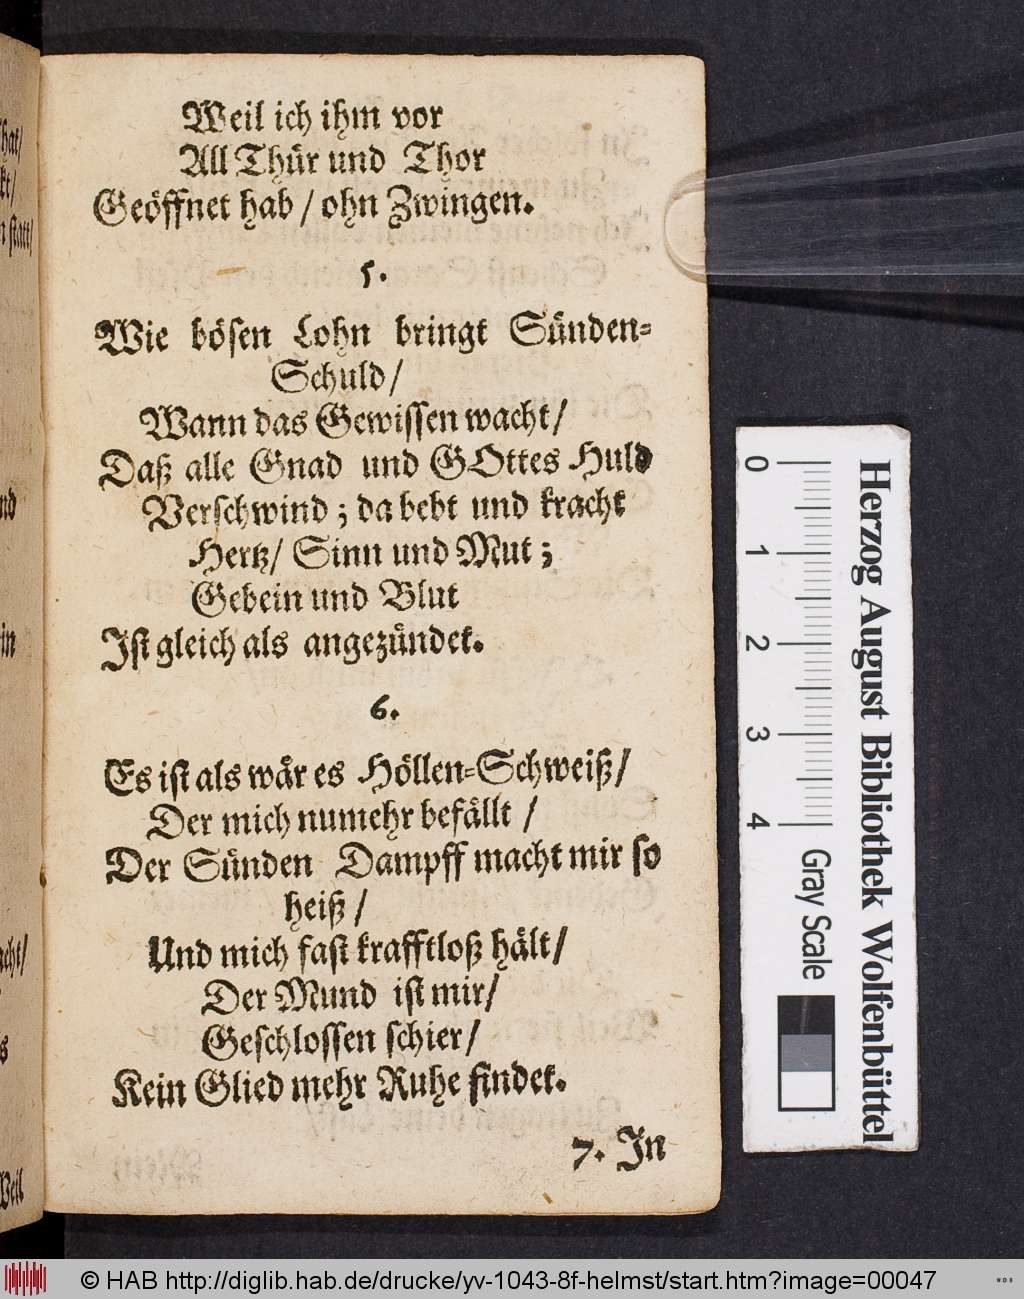 Weil ich ihm vor
All Thür und Thor
Geöffnet hab / ohn Zwingen.
5.
Wie bösen Lohn bringt Sünden-
Schuld /
Wann das Gewissen wacht /
Daß alle Gnad und GOttes Huld
Verschwind ; da bebt und kracht
Hertz / Sinn und Mut ;
Gebein und Blut
Ist gleich als angezündet.
6.
Es ist als wär es Höllen-Schweiß /
Der mich numehr befällt /
Der Sünden Dampff macht mir so
heiß /
Und mich fast krafftloß hält /
Der Mund ist mir /
Geschlossen schier /
Kein Glied mehr Ruhe findet.
7. In
Weil
0 1 2 3 4
Gray Scale
Herzog August Bibliothek Wolfenbüttel
© HAB http://diglib.hab.de/drucke/yv-1043-8f-helmst/start.htm?image=00047